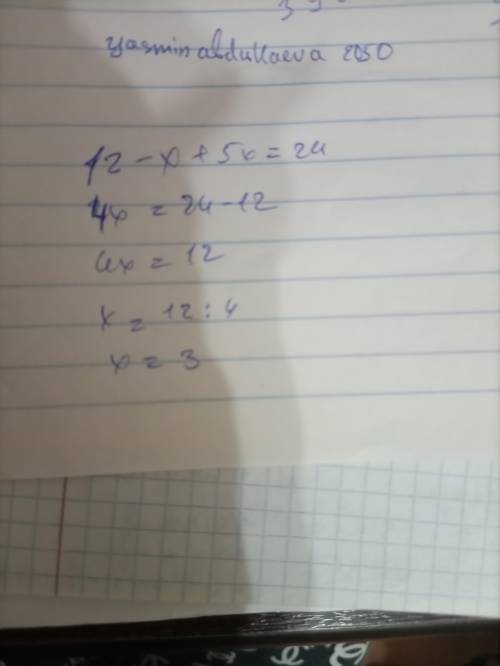 yasmin abdullaeva 2050
12 - x + 5x = 24
4x = 24 - 12
4x = 12
x = 12 : 4
x = 3